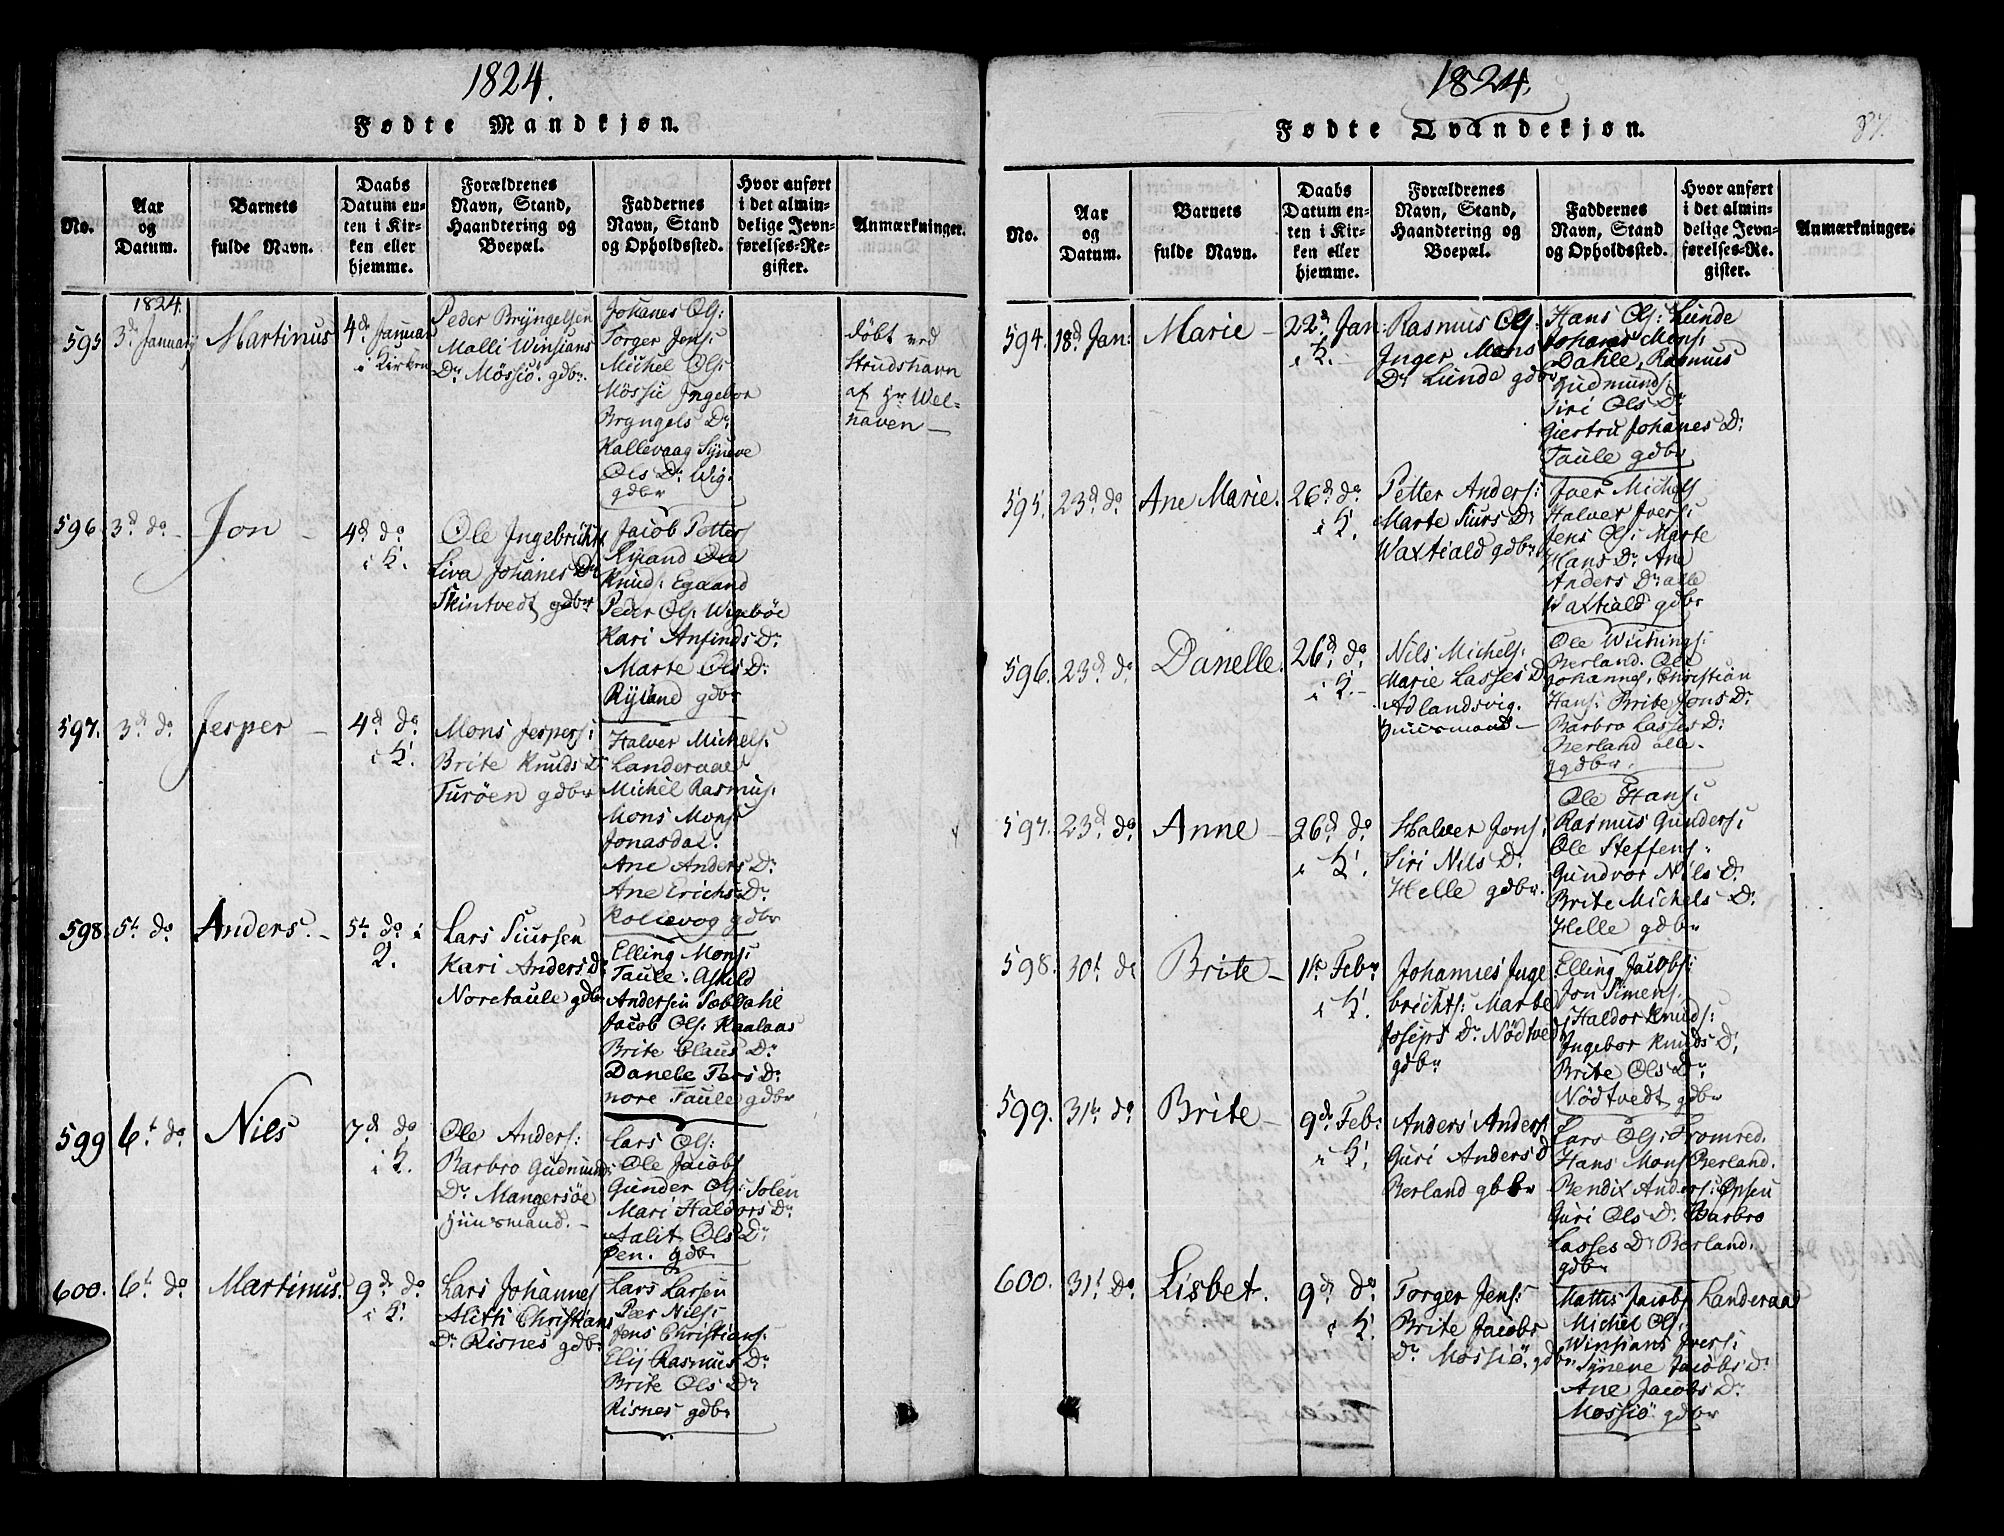 1824.
Fødte Mandkjøn.
No.
Aar
og
Datum.
Barnets
fulde Navn.
Daabs
Datum en-
ten i Kir-
ken eller
hjemme.
Forældrenes
Navn, Stand,
Haandtering og
Boepæl.
Faddernes
Navn, Stand
og Opholdssted.
Hvor anført
i det almin-
delige Jevn-
førelses-Re-
gister.
Anmærkninger.
595
1824
3d January
Martinus
4de Januar
i Kirken
Peder Bryngelsen
Malli Winsians
Dr Mössiö. gdbr.
Johanes Ols:
Torger Jens:
Michel Ols:
Mössiö Ingebor
Bryngels Dr
Kallevaag Syneve
Ols Dr Wig:
gdbr
döbt ved
Strudshavn
af Hr Wel-
haven —
596
3d do
Jon
4d do
i K.
Ole Ingebrichts
Liva Johanes Dr
Skintvedt gdbr
Jacob Petters
Ryland Ole
Knuds: Egaand
Peder Ols: Wigeböe
Kari Anfinds Dr
Marte Ols Dr
Ryland gdbr
597.
3d do
Jesper
4d do
i K.
Mons Jespers:
Brite Knuds Dr
Turöen gdbr
Halver Michels:
Landeraae
Michel Rasmus:
Mons Mons:
Jonasdal.
Ane Anders Dr
Ane Erichs Dr
Kollevog gdbr
598.
5t do
Anders.
5t do i
K.
Lars Siursen
Kari Anders Dr
Noretaule gdbr
Elling Mons:
Taule. Askild
Andersen Sæbdahl
Jacob Ols: Kaalaas
Brite Claus Dr
Danele Pers Dr
nore Taule gdbr
599
6t do
Nils
7d do
i K.
Ole Anders:
Barbro Gudmund:
Dr Mangersöe
Huusmand.
Lars Ols:
Ole Jacobs
Gunder Ols: Solen
Mari Haldors Dr
Aalit Ols Dr
gdbr
600.
6t do
Martinus.
9de do
i K.
Lars Johannes
Aletti Christians
Dr Risnes gdbr
Lars Larsen
Pær Nils:
Jens Christians:
Elij Rasmus Dr
Brite Ols Dr
Risnes gdbr
1824.
87.
Fødte Qvindekjøn.
No.
Aar
og
Datum.
Barnets
fulde Navn.
Daabs
Datum en-
ten i Kir-
ken eller
hjemme.
Forældrenes
Navn, Stand,
Haandtering og
Boepæl.
Faddernes
Navn, Stand
og Opholdssted.
Hvor anført
i det almin-
delige Jevn-
førelses-Re-
gister.
Anmærkninger.
594.
18d Jan:
Marie
22d Jan.
i K.
Rasmus Ols:
Inger Mons
Dr Lunde gdbr
Hans Ols: Lunde
Johanes Mons:
Dahle, Rasmus
Gudmunds:
Siri Ols Dr
Giertru Johanes Dr
Taule gdbr
595.
23d do
Ane Marie.
26d do
i K.
Petter Anders:
Marte Siurs Dr
Waxtiald gdbr
Iver Michels
Halver Ivers:
Jens Ols: Marte
Hans Dr Ane
Anders Dr alle
Waxtiald gdbr
596.
23d do
Danelle.
26d do
i K.
Nils Michels:
Marie Lasses Dr
Adlandsvig.
Huusmand —
Ole
Berland. Ole
Johannes, Christian
Hans: Brite Jons Dr
Barbro Lasses Dr
Berland alle.
gdbr.
597.
23d do
Anne
26d do
i K.
Halver Jons:
Siri Nils Dr
Helle gdbr.
Ole Hans:
Rasmus Gunders:
Ole Steffens:
Gundvor Nils Dr
Brite Michels Dr
Helle gdbr
598.
30t do
Brite
1te Febr
i K.
Johannes Inge
brichts: Marte
Joseps Dr Nödtvedt
gdbr
Elling Jacobs:
Jon Simens.
Haldor Knuds:
Ingebor Knuds Dr
Brite Ols Dr
Nödtvedt gdbr
599.
31te do
Brite
9de Feb:
i K.
Anders Anders
Guri Anders Dr
Berland gdbr
Lars Ols: Fromred.
Hans Mons Berland.
Bendix Anders: Epsen
Guri Ols Dr Barbro
Lasses Dr Berland.
gdbr
600.
31t do
Lisbet.
9de do
i K.
Torger Jens:
Brite Jacobs
Dr Mossiö. gdbr
Mattis Jacobs Landeraad
Michel Ols:
Winsians Ivers:
Syneve Jacobs Dr
Ane Jacobs Dr
Mossiö gdbr